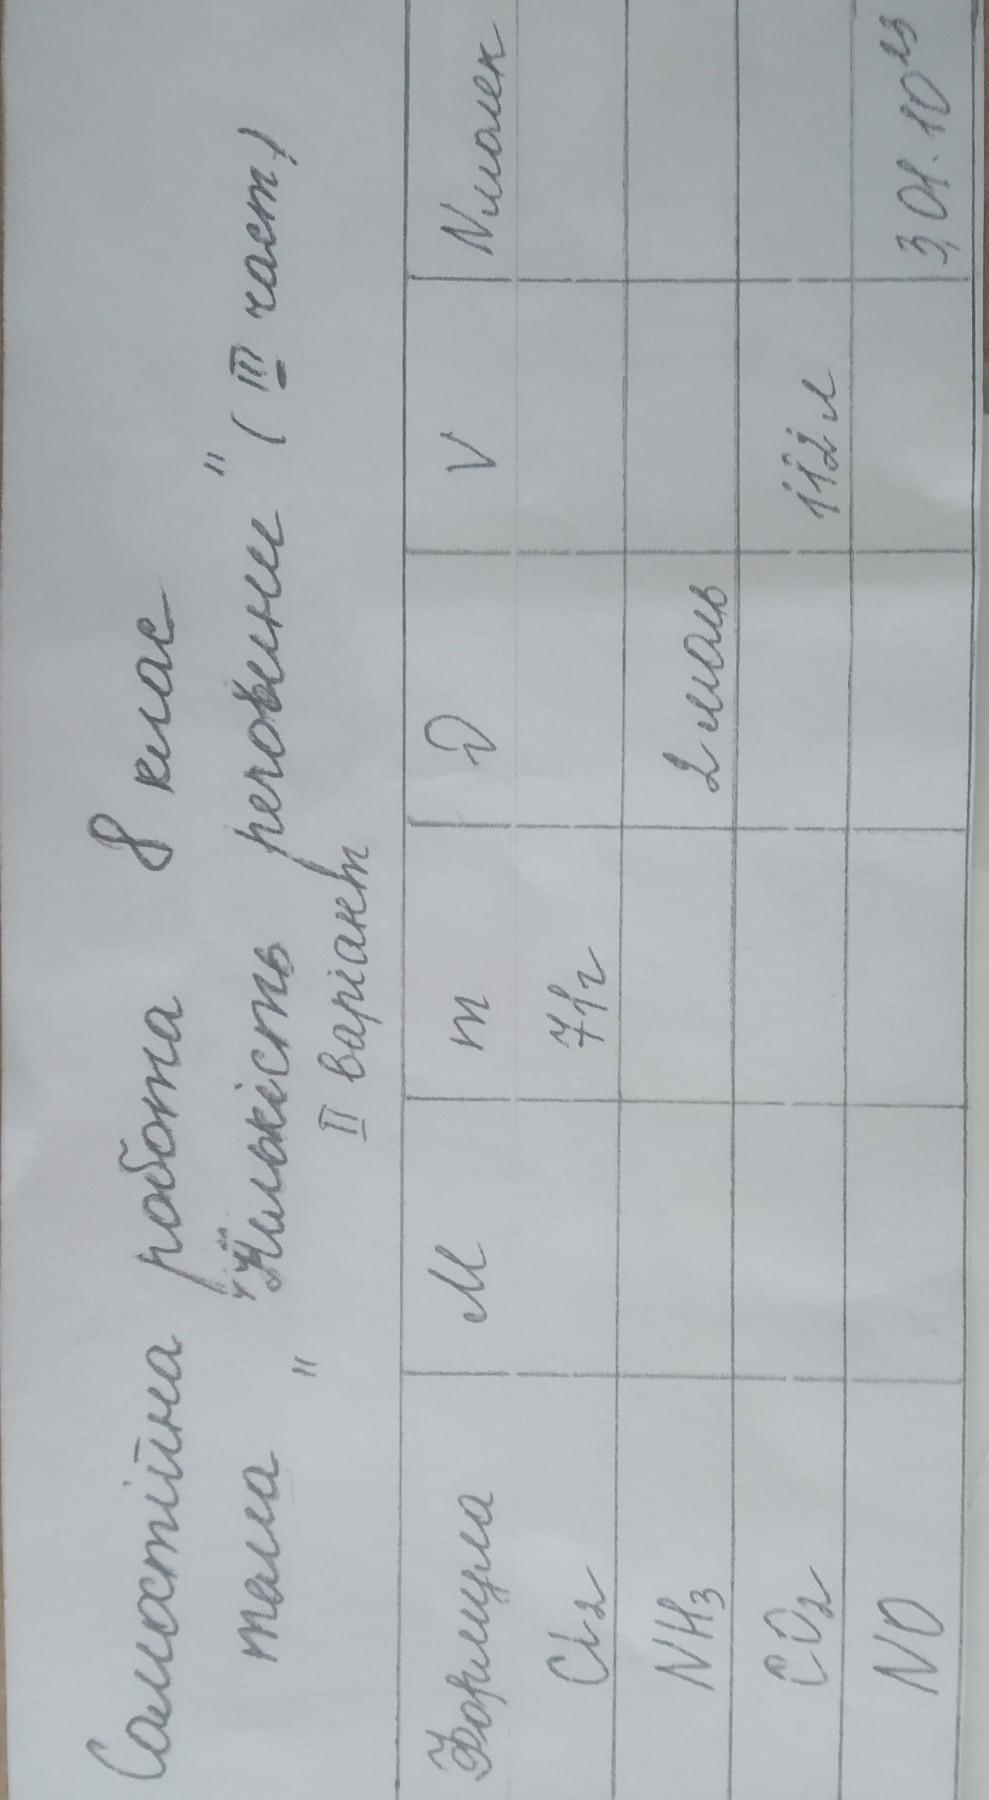 Самостійна робота 8 клас
тема "Кількість речовини" (III част.)
II варіант
Формула M m ν V Nмолек
Cl₂ 71г
NH₃ 2 моль
CO₂ 112л
NO 3,01·10²³